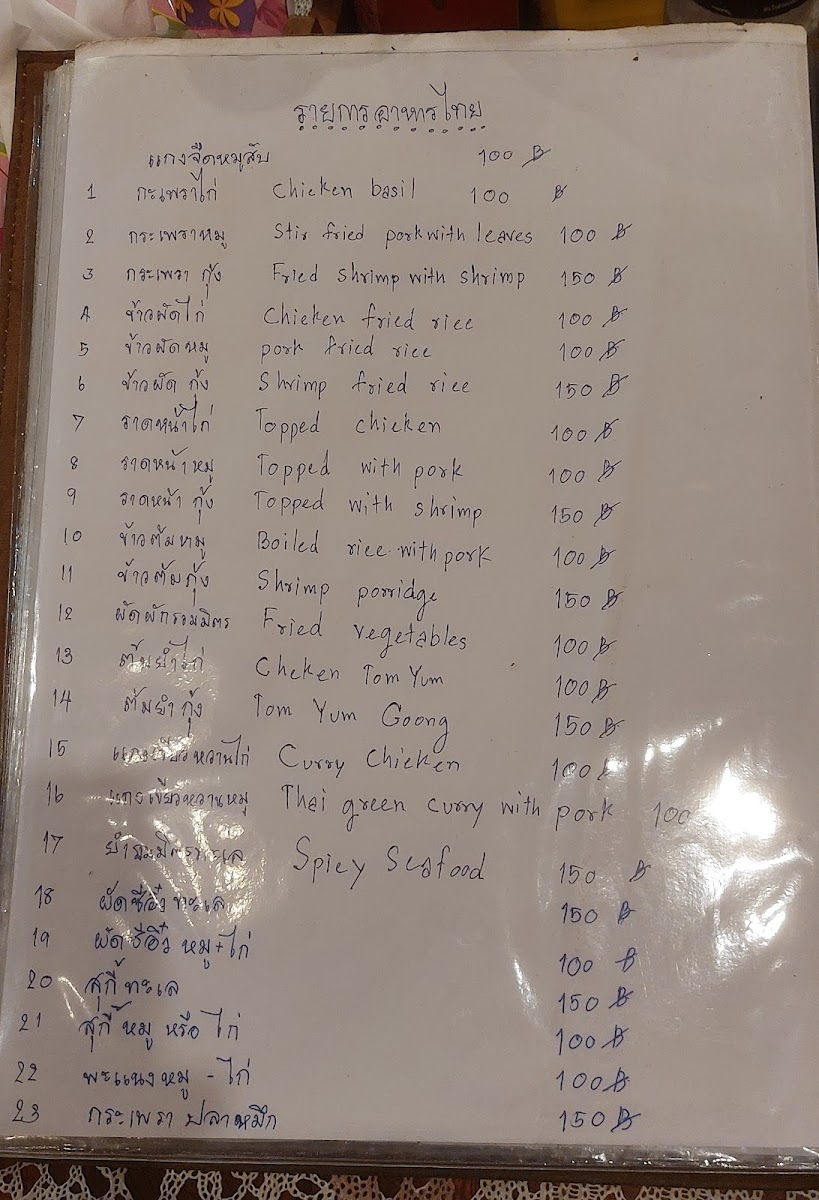 รายการอาหารไทย
แกงจืดหมูสับ 100 ฿
1 กะเพราไก่ Chicken basil 100 ฿
2 กระเพราหมู Stir fried pork with leaves 100 ฿
3 กระเพรา กุ้ง Fried shrimp with shrimp 150 ฿
4 ข้าวผัดไก่ Chicken fried rice 100 ฿
5 ข้าวผัดหมู pork fried rice 100 ฿
6 ข้าวผัด กุ้ง Shrimp fried rice 150 ฿
7 ราดหน้าไก่ Topped chicken 100 ฿
8 ราดหน้าหมู Topped with pork 100 ฿
9 ราดหน้า กุ้ง Topped with shrimp 150 ฿
10 ข้าวต้มหมู Boiled rice with pork 100 ฿
11 ข้าวต้มกุ้ง Shrimp porridge 150 ฿
12 ผัดผักรวมมิตร Fried vegetables 100 ฿
13 ต้มยำไก่ Checken Tom Yum 100 ฿
14 ต้มยำกุ้ง Tom Yum Goong 150 ฿
15 แกงเขียวหวานไก่ Curry Chicken 100 ฿
16 แกงเขียวหวานหมู Thai green curry with pork 100
17 ยำรวมมิตรทะเล Spicy Seafood 150 ฿
18 ผัดซีอิ๋วทะเล 150 ฿
19 ผัดซีอิ๋ว หมู+ไก่ 100 ฿
20 สุกี้ทะเล 150 ฿
21 สุกี้หมู หรือ ไก่ 100 ฿
22 พะแนงหมู - ไก่ 100 ฿
23 กระเพรา ปลาหมึก 150 ฿